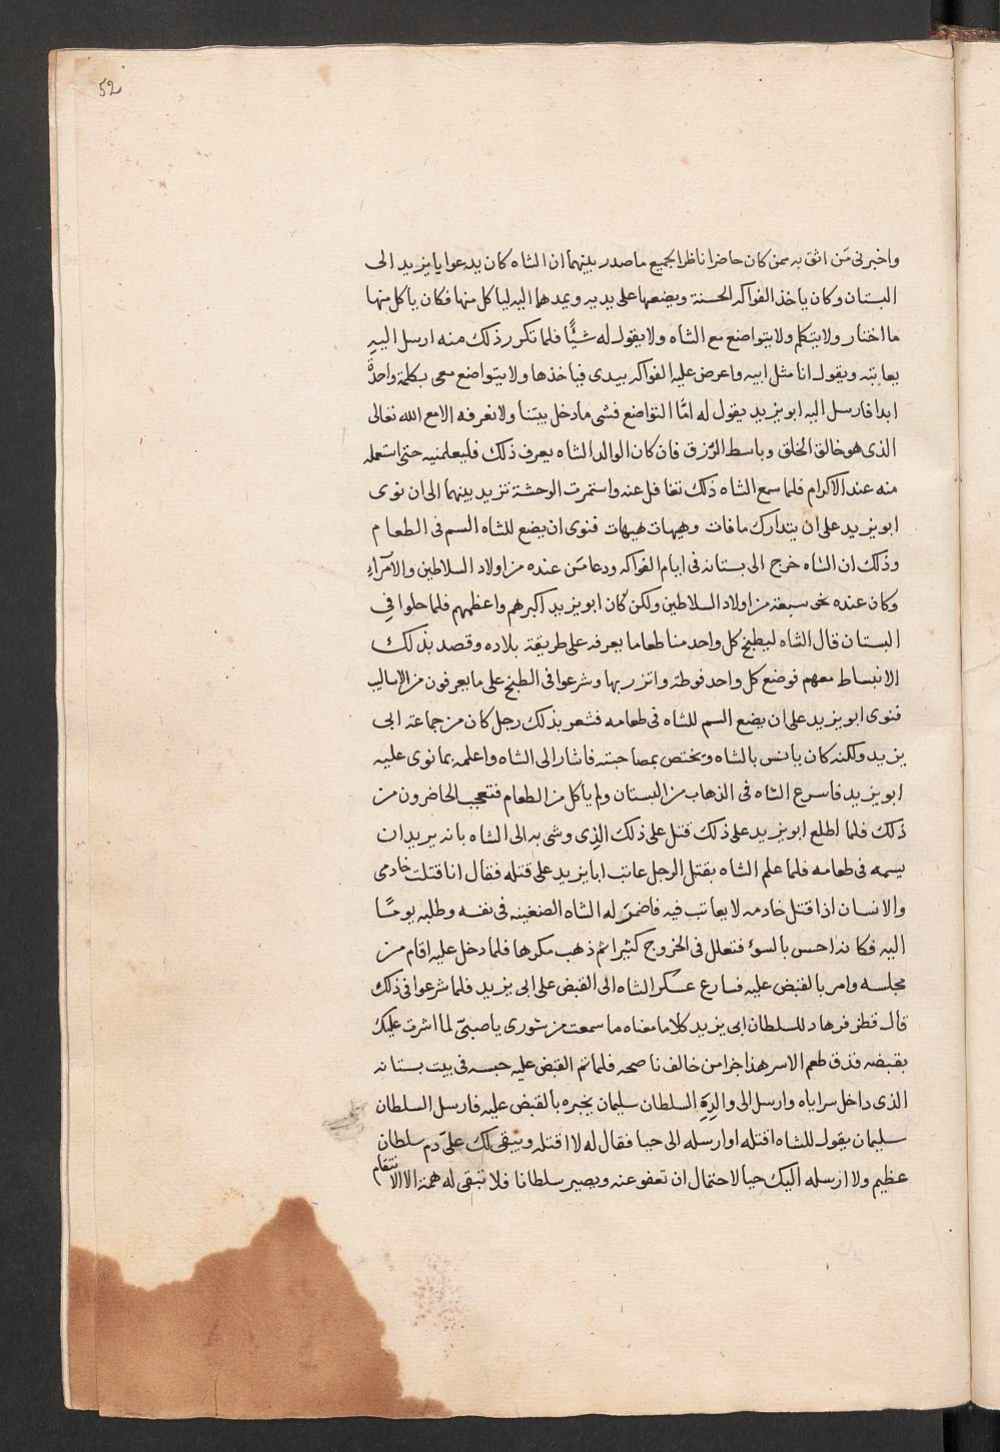 52
واخبرنى مَن اثق به ممن كان حاضرا ناظرا لجميع ما صدر بينهما ان الشاه كان يدعوا يا يزيد الى
البستان وكان ياخذ الفواكه الحسنة ويضعها على يديه ويمدهما اليه لياكل منها فكان ياكل منها
ما اختار ولا يتكلم ولا يتواضع مع الشاه ولا يقول له شئًا فلما تكرر ذلك منه ارسل اليه
يعاتبه ويقول انا مثل ابيه واعرض عليه الفواكه بيدى فياخذها ولا يتواضع معى بكلمة واحدة
ابدا فارسل اليه ابو يزيد يقول له امَّا التواضع فشى ما دخل بيتنا ولا نعرفه الا مع الله تعالى
الذى هو خالق الخلق وباسط الرّزق فان كان الوالد الشاه يعرف ذلك فليعلمنيه حتى استعمله
منه عند الاكرام فلما سمع الشاه ذلك تغافل عنه واستمرت الوحشة تزيد بينهما الى ان نوى
ابو يزيد على ان يتدارك ما فات وهيهات هيهات فنوى ان يضع للشاه السم فى الطعام
وذلك ان الشاه خرج الى بستانه فى ايام الفواكه ودعا مَن عنده من اولاد السلاطين والامرآء
وكان عنده نحو سبعة من اولاد السلاطين ولكن كان ابو يزيد اكبرهم واعظمهم فلما حلوا في
البستان قال الشاه ليطبخ كل واحد منا طعاما يعرفه على طريقة بلاده وقصد بذلك
الانبساط معهم فوضع كل واحد فوطة واتزر بها وشرعوا فى الطبخ على ما يعرفون من الاساليب
فنوى ابو يزيد على ان يضع السم للشاه فى طعامه فشعر بذلك رجل كان من جماعة ابى
يزيد ولكنه كان يانس بالشاه ويختص بمصاحبته فاشار الى الشاه واعلمه بما نوى عليه
ابو يزيد فاسرع الشاه فى الذهاب من البستان ولم ياكل من الطعام فتعجب الحاضرون من
ذلك فلما اطلع ابو يزيد على ذلك قتل على ذلك الذي وشى به الى الشاه بانه يريد ان
يسمه فى طعامه فلما علم الشاه بقتل الرجل عاتب ابا يزيد على قتله فقال انا قتلت خادمى
والانسان اذا قتل خادمه لا يعاتب فيه فاضمر له الشاه الضغينه فى نفسه وطلبه يومًا
اليه فكانه احس بالسوء فتعلل فى الخروج كثيرا ثم ذهب مكرها فلما دخل عليه اقام من
مجلسه وامر بالقبض عليه فسارع عسكر الشاه الى القبض على ابى يزيد فلما شرعوا فى ذلك
قال قطز فرهاد للسلطان ابى يزيد كلاما معناه ما سمعت من شورى يا صبىّ لما اشرت عليك
بقبضه فذق طعم الاسر هذا جزا من خالف ناصحه فلما تم القبض عليه حبسه فى بيت بستانه
الذى داخل سراياه وارسل الى والدِهِ السلطان سليمان يخبره بالقبض عليه فارسل السلطان
سليمان يقول للشاه اقتله او ارسله الى حيا فقال له لا اقتله ويبقى لك علىّ دم سلطان
عظيم ولا ارسله اليك حيا لاحتمال ان تعفو عنه ويصير سلطانا فلا تبقى له همة الا الانتقام